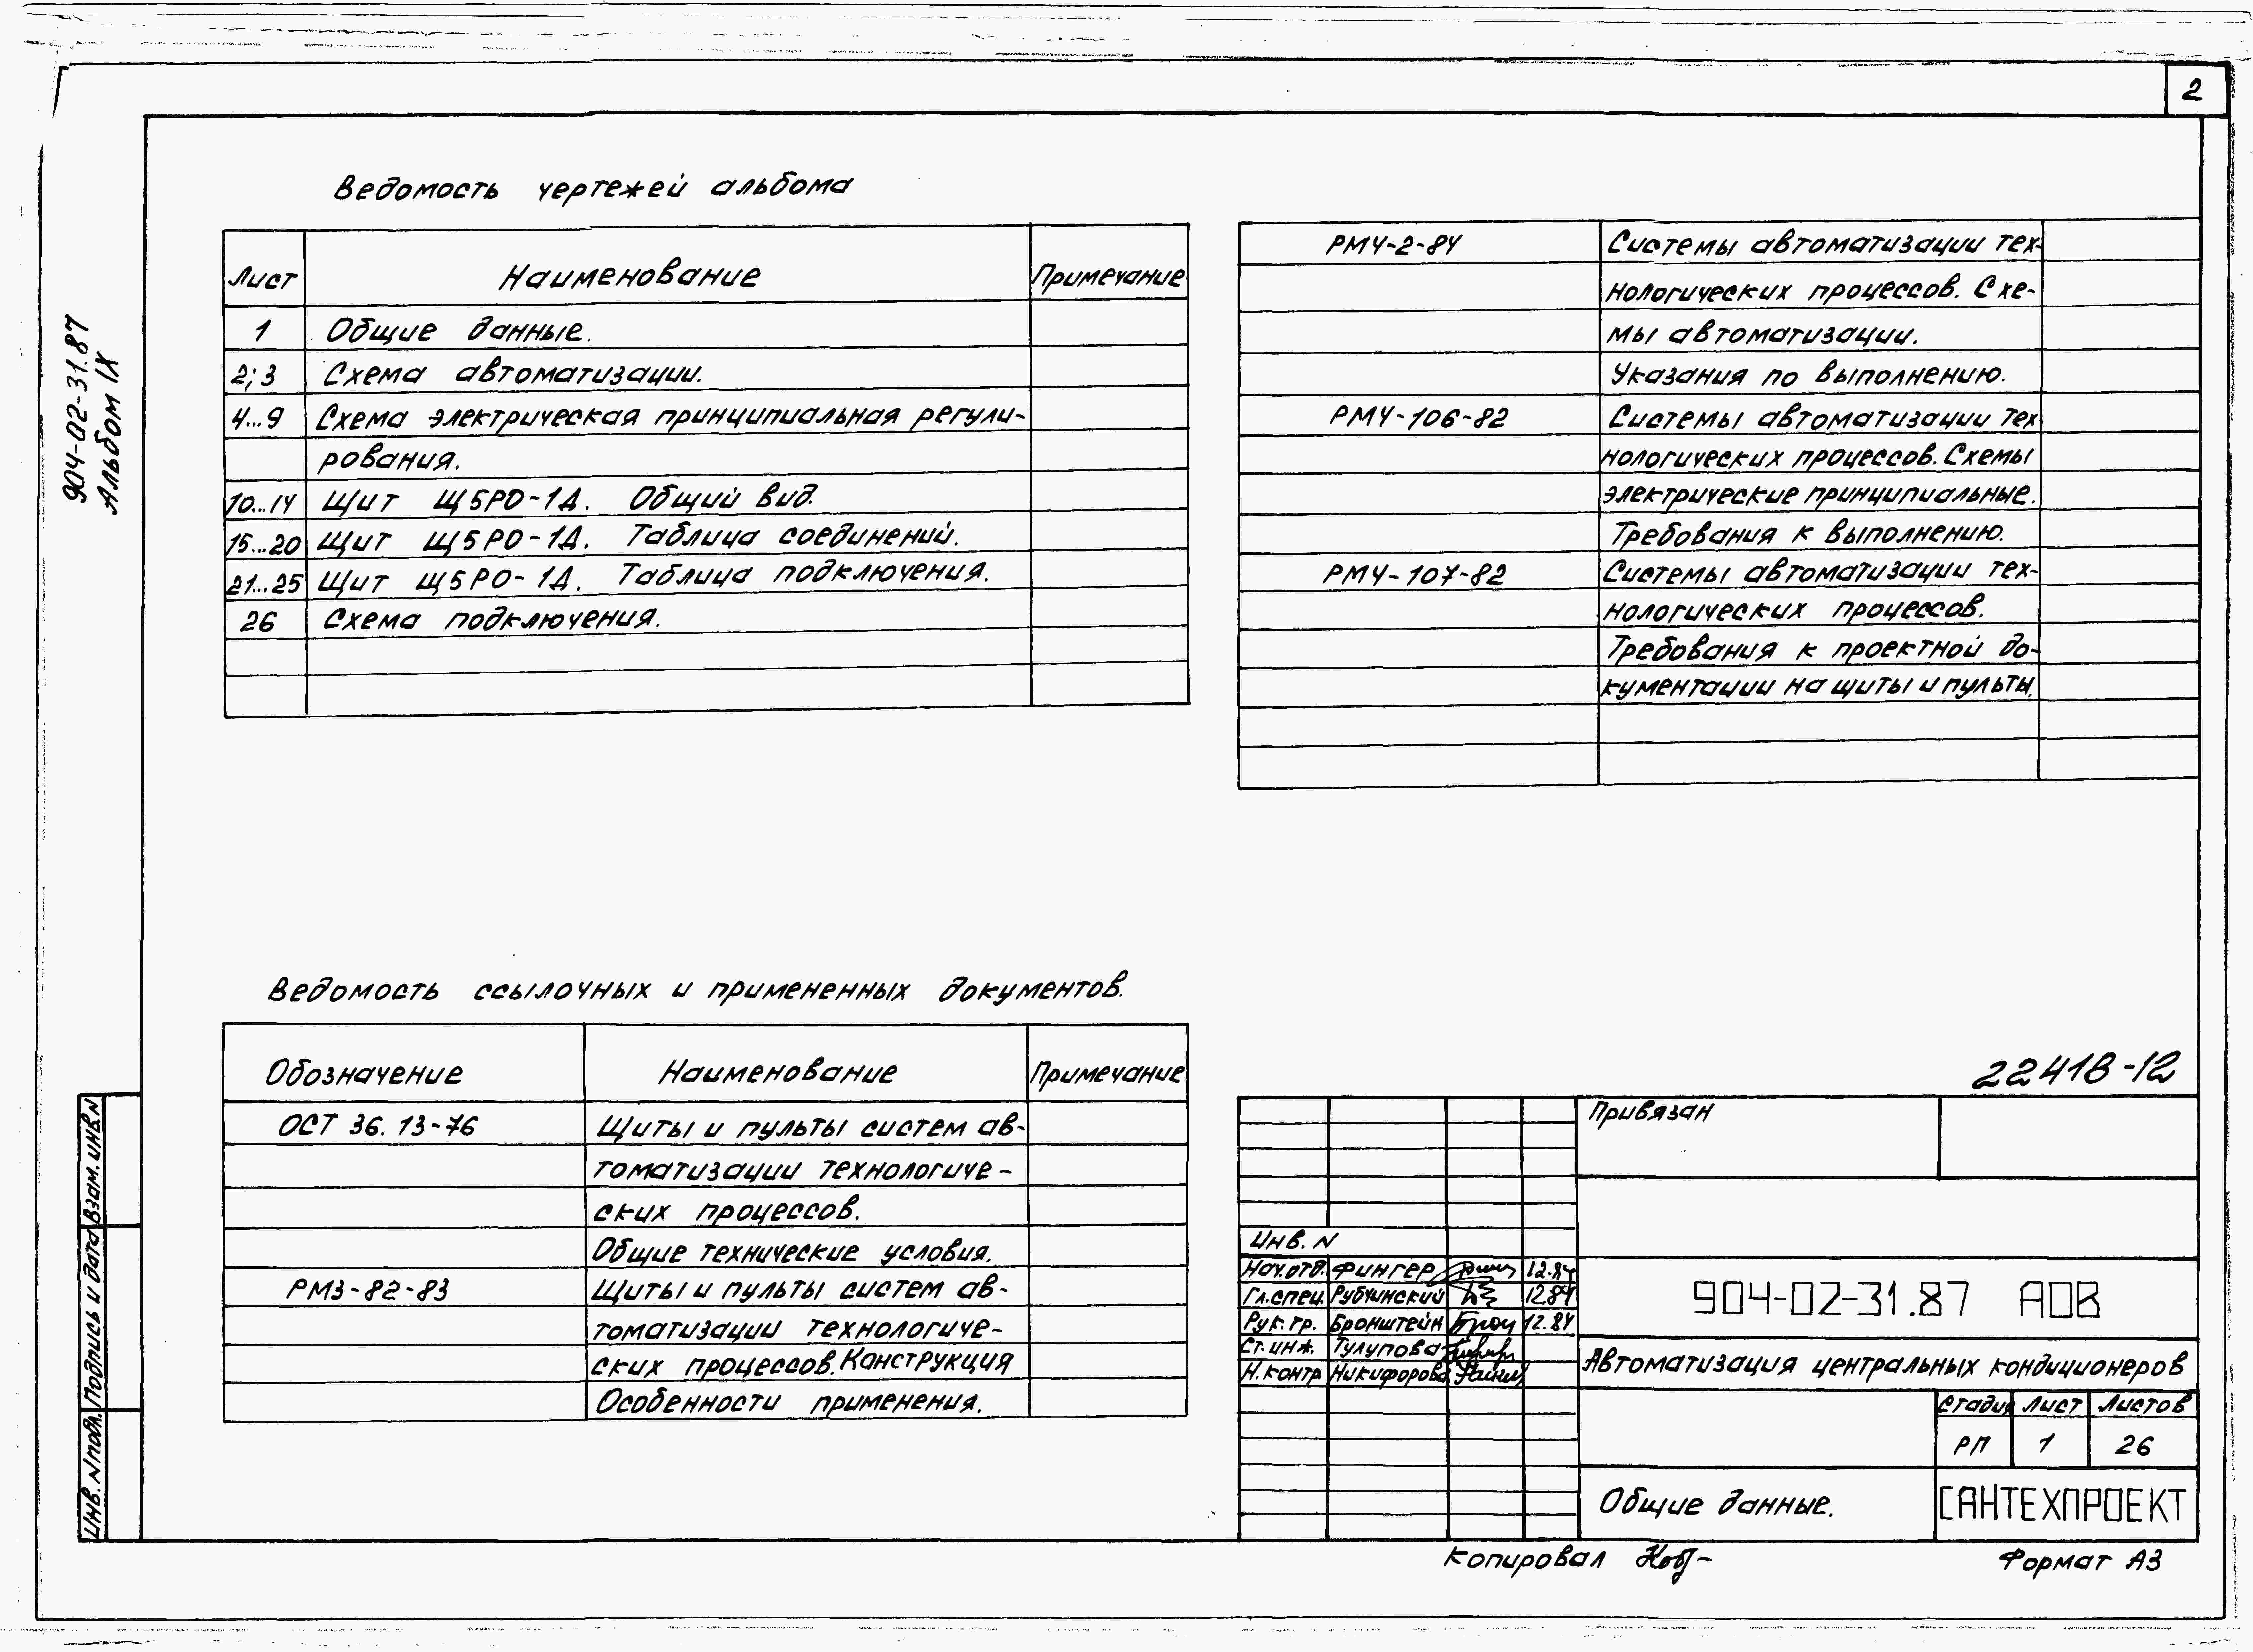 2
904-02-31.87
Альбом IX
Ведомость чертежей альбома
Лист Наименование Примечание
1 Общие данные.
2; 3 Схема автоматизации.
4...9 Схема электрическая принципиальная регули-
рования.
10...14 Щит Щ5РО-1Д. Общий вид.
15...20 Щит Щ5РО-1Д. Таблица соединений.
21...25 Щит Щ5РО-1Д. Таблица подключения.
26 Схема подключения.
Ведомость ссылочных и примененных документов.
Обозначение Наименование Примечание
ОСТ 36. 13-76 Щиты и пульты систем ав-
томатизации технологиче-
ских процессов.
Общие технические условия.
РМ3-82-83 Щиты и пульты систем ав-
томатизации технологиче-
ских процессов. Конструкция
Особенности применения.
РМ4-2-84 Системы автоматизации тех-
нологических процессов. Схе-
мы автоматизации.
Указания по выполнению.
РМ4-106-82 Системы автоматизации тех-
нологических процессов. Схемы
электрические принципиальные.
Требования к выполнению.
РМ4-107-82 Системы автоматизации тех-
нологических процессов.
Требования к проектной до-
кументации на щиты и пульты.
22418-12
Привязан
Инв. N
Нач.отд. Фингер 12.84
Гл.спец. Рубчинский 12.84
Рук. гр. Бронштейн 12.84
Ст. инж. Тулупова
Н. контр Никифорова
904-02-31.87 АОВ
Автоматизация центральных кондиционеров
Стадия Лист Листов
РП 1 26
Общие данные.
САНТЕХПРОЕКТ
Взам. инв. N
Подпись и дата
Инв. N подл.
Копировал
Формат А3